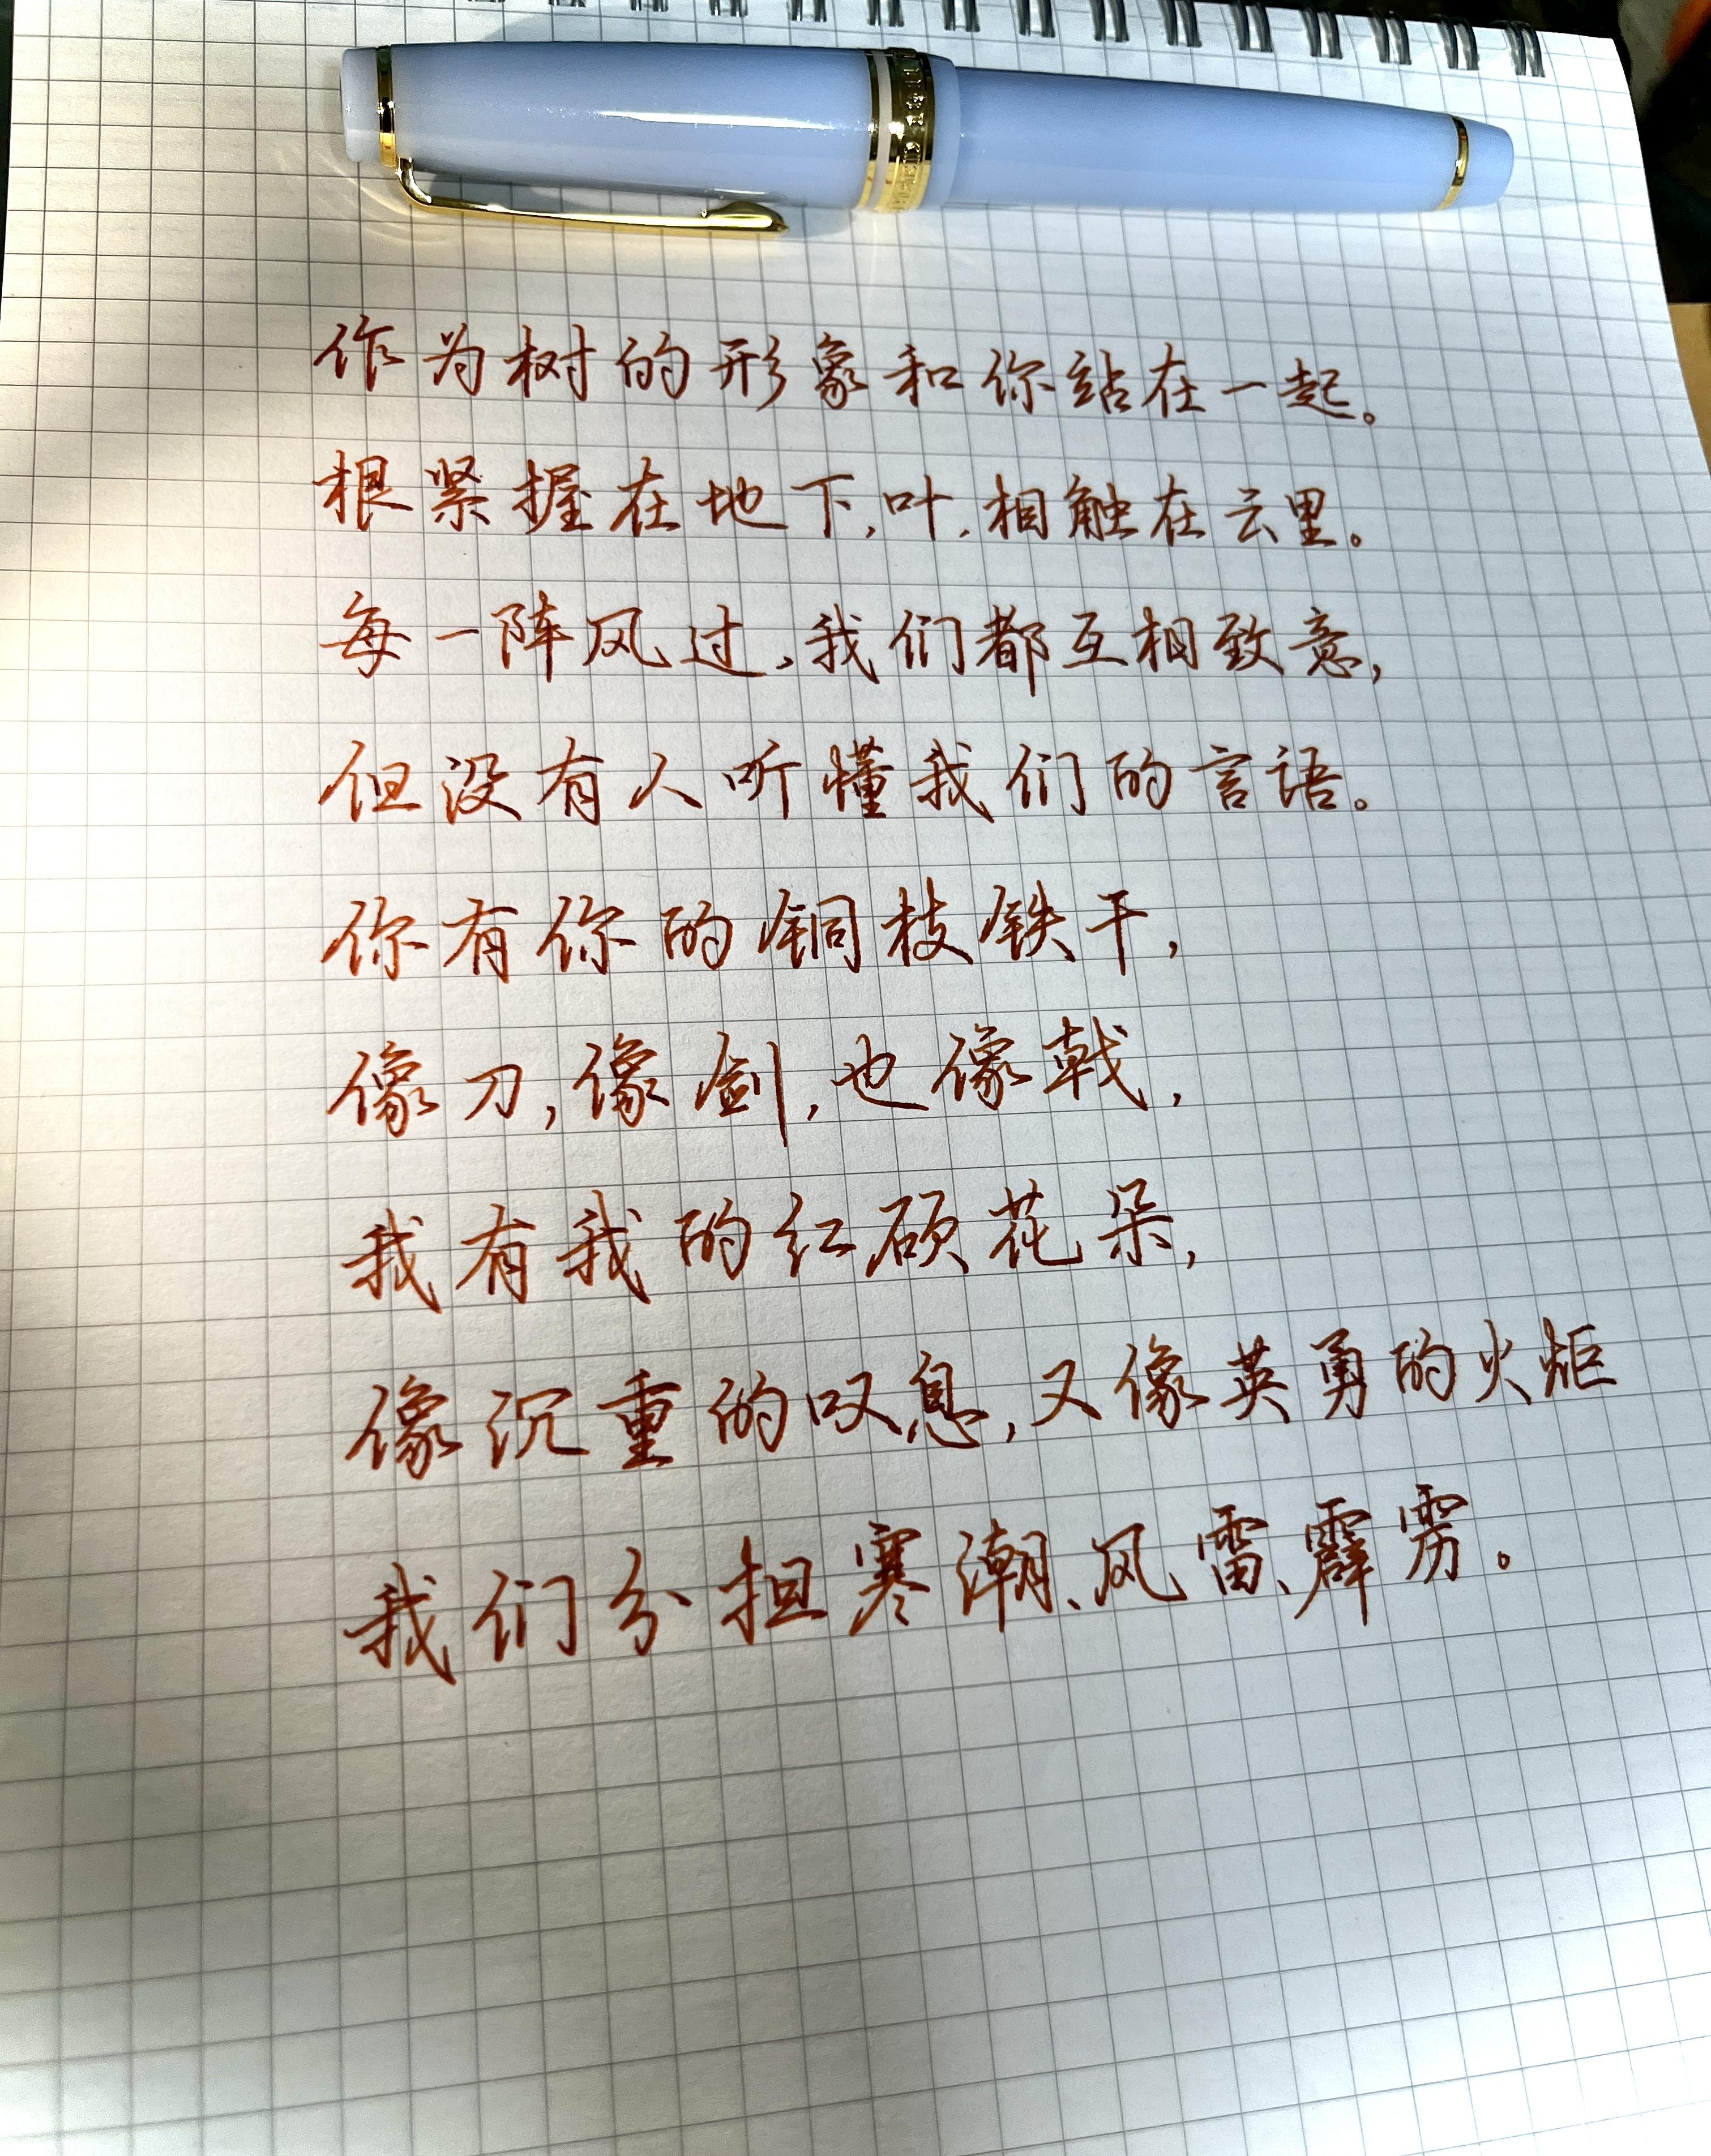 作为树的形象和你站在一起。
根紧握在地下,叶,相触在云里。
每一阵风过,我们都互相致意,
但没有人听懂我们的言语。
你有你的铜枝铁干,
像刀,像剑,也像戟,
我有我的红硕花朵,
像沉重的叹息,又像英勇的火炬
我们分担寒潮、风雷、霹雳。